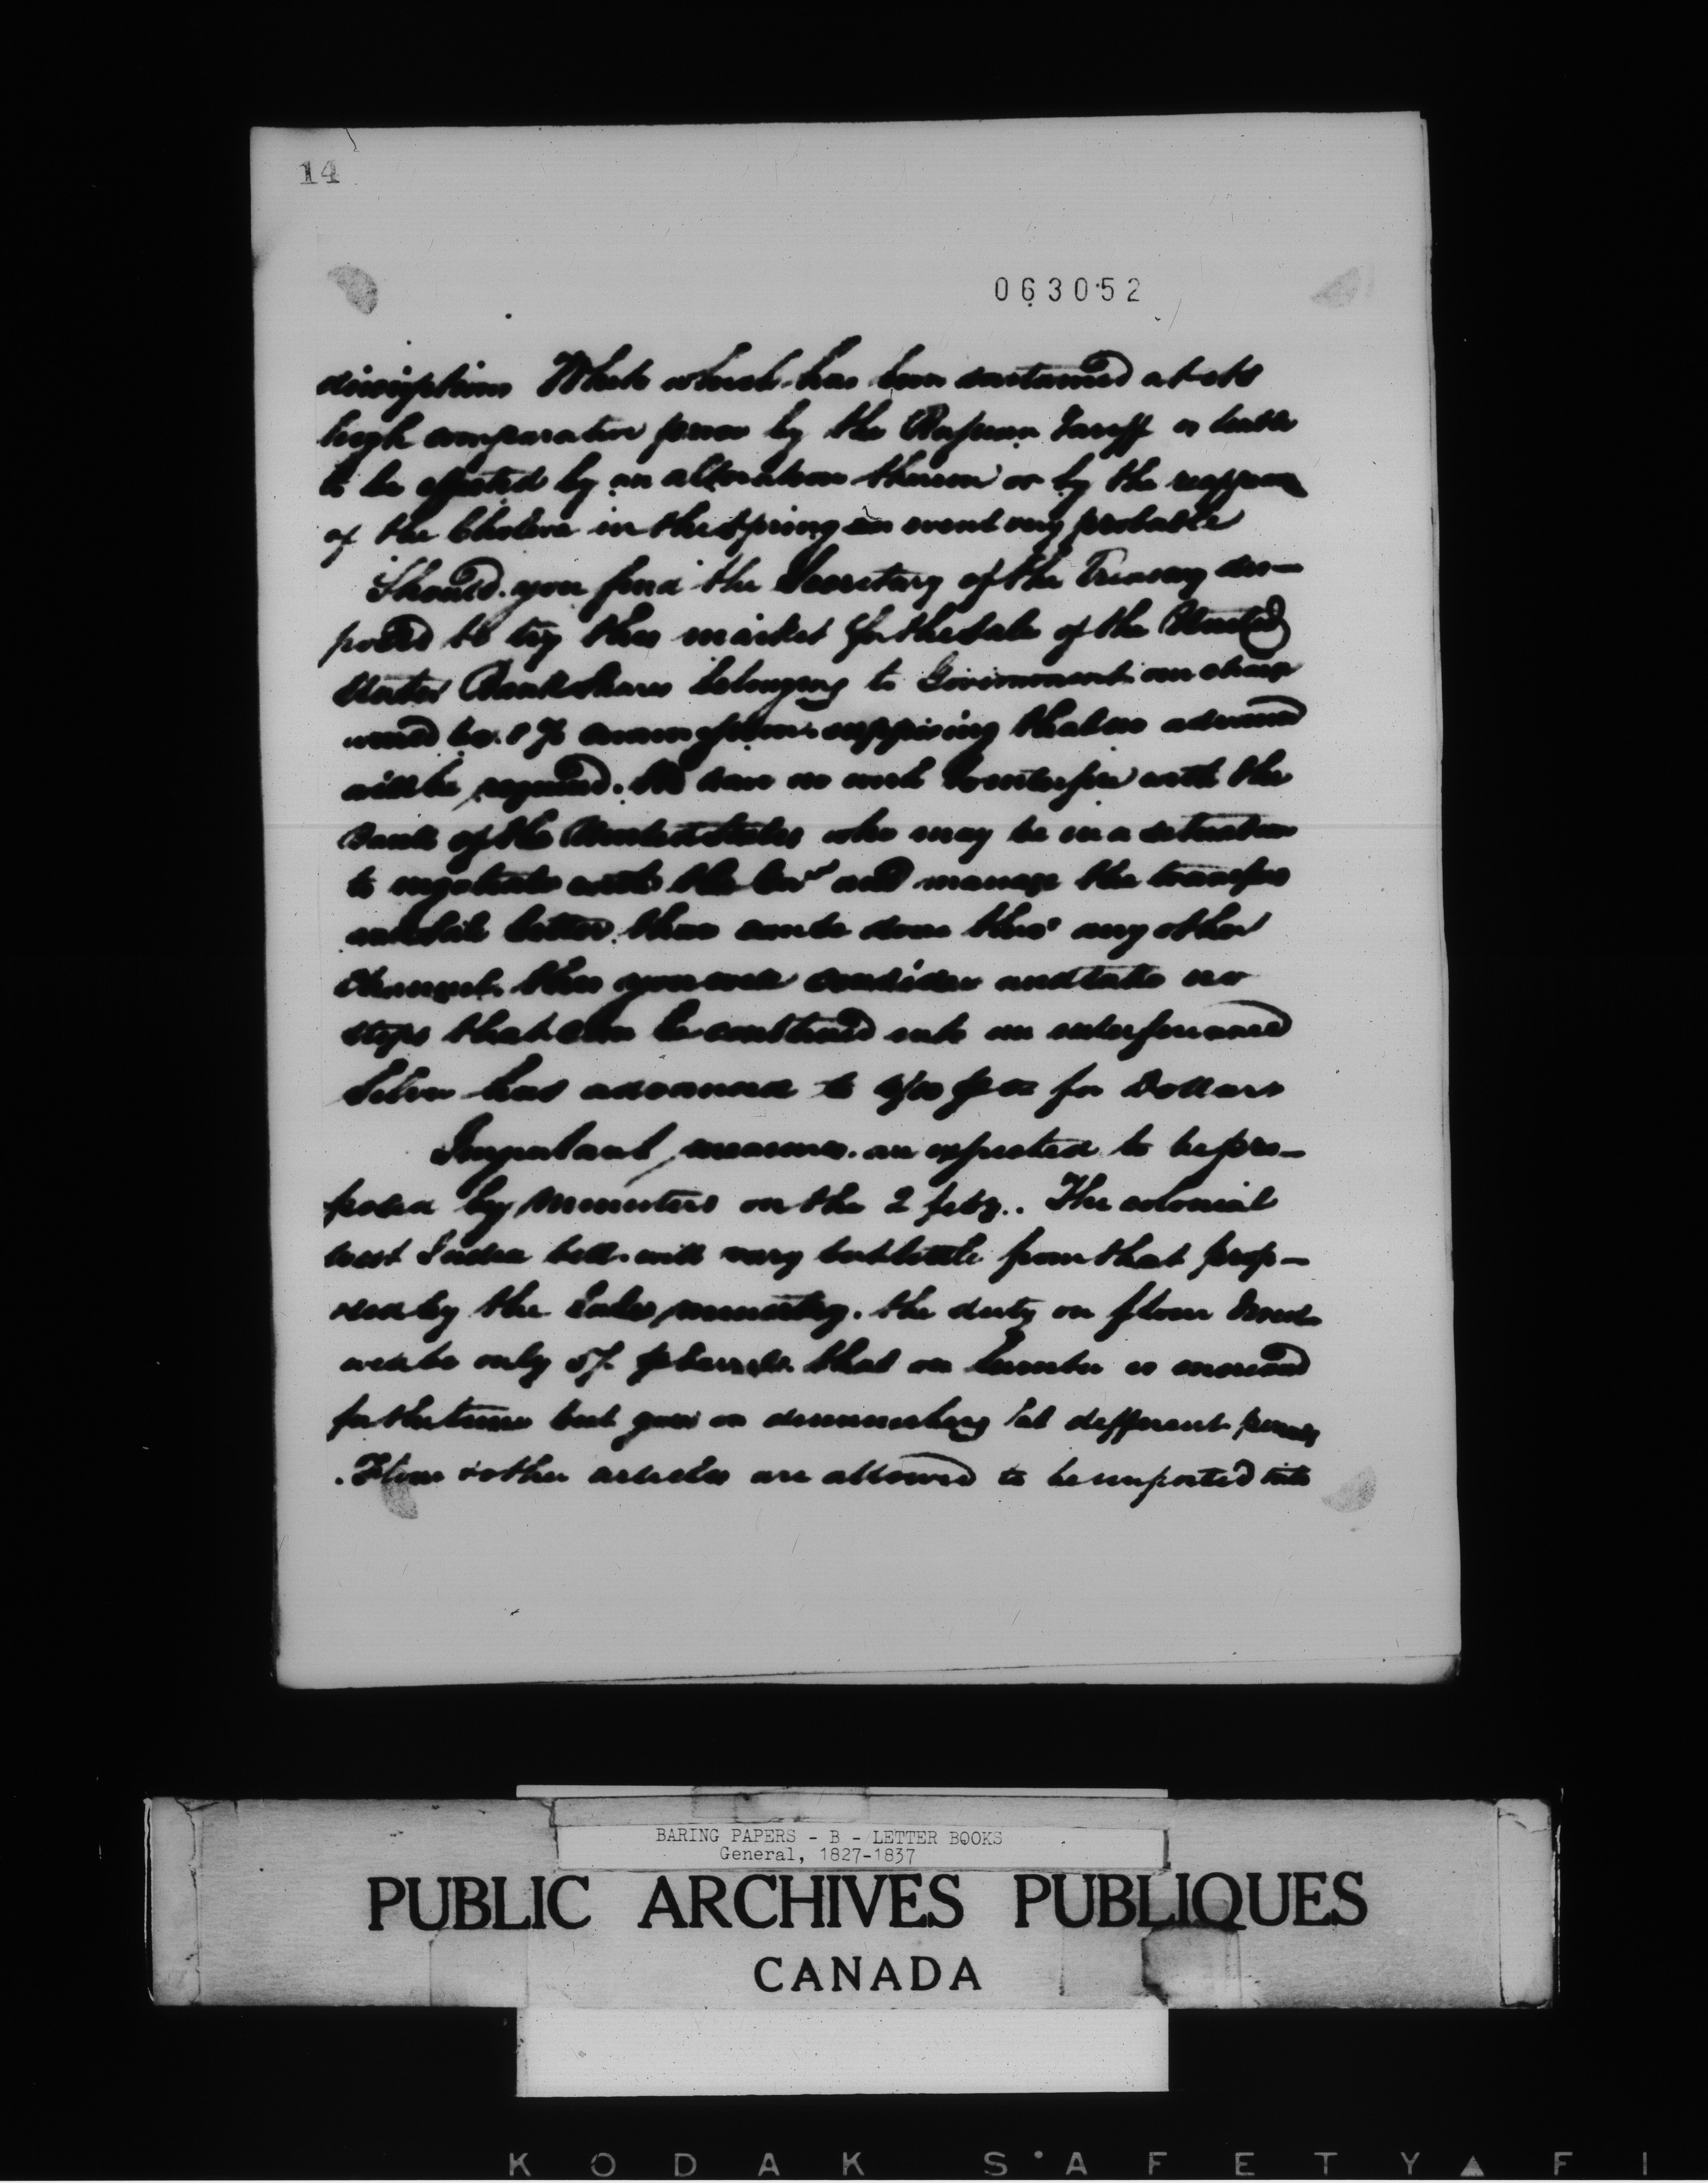 14
063052
description White which has been sustained at its
high comparative price by the Russian Tariff is liable
to be affected by an alteration therein or by the reappear
of the Cholera in the Spring an event very probable
Should you find the Secretary of the Treasury dis-
posed to try this market for the sale of the United
States Bank Shares belonging to Government our charge
would be 1 % commission supposing that no advance
will be required. We can no wise interfere with the
Bank of the United States who may be in a situation
to negotiate with the Gov.t and manage the transfer
better than can be done thro' any other
Channel this you will consider and take no
steps that can be construed into an interference
Silver has advanced to 4/10 p oz for Dollars
Important measures are expected to be pro-
posed by Ministers on the 2 feby.. The colonial
West India bill will vary but little from that prop-
osed by the late ministry. the duty on flour
will be only 5/. p barrel that on Lumber is increased
for the time but goes on diminishing at different periods
. Flour & other articles are allowed to be imported into
BARING PAPERS - B - LETTER BOOKS
General, 1827-1837
PUBLIC ARCHIVES PUBLIQUES
CANADA
KODAK SAFETY FI